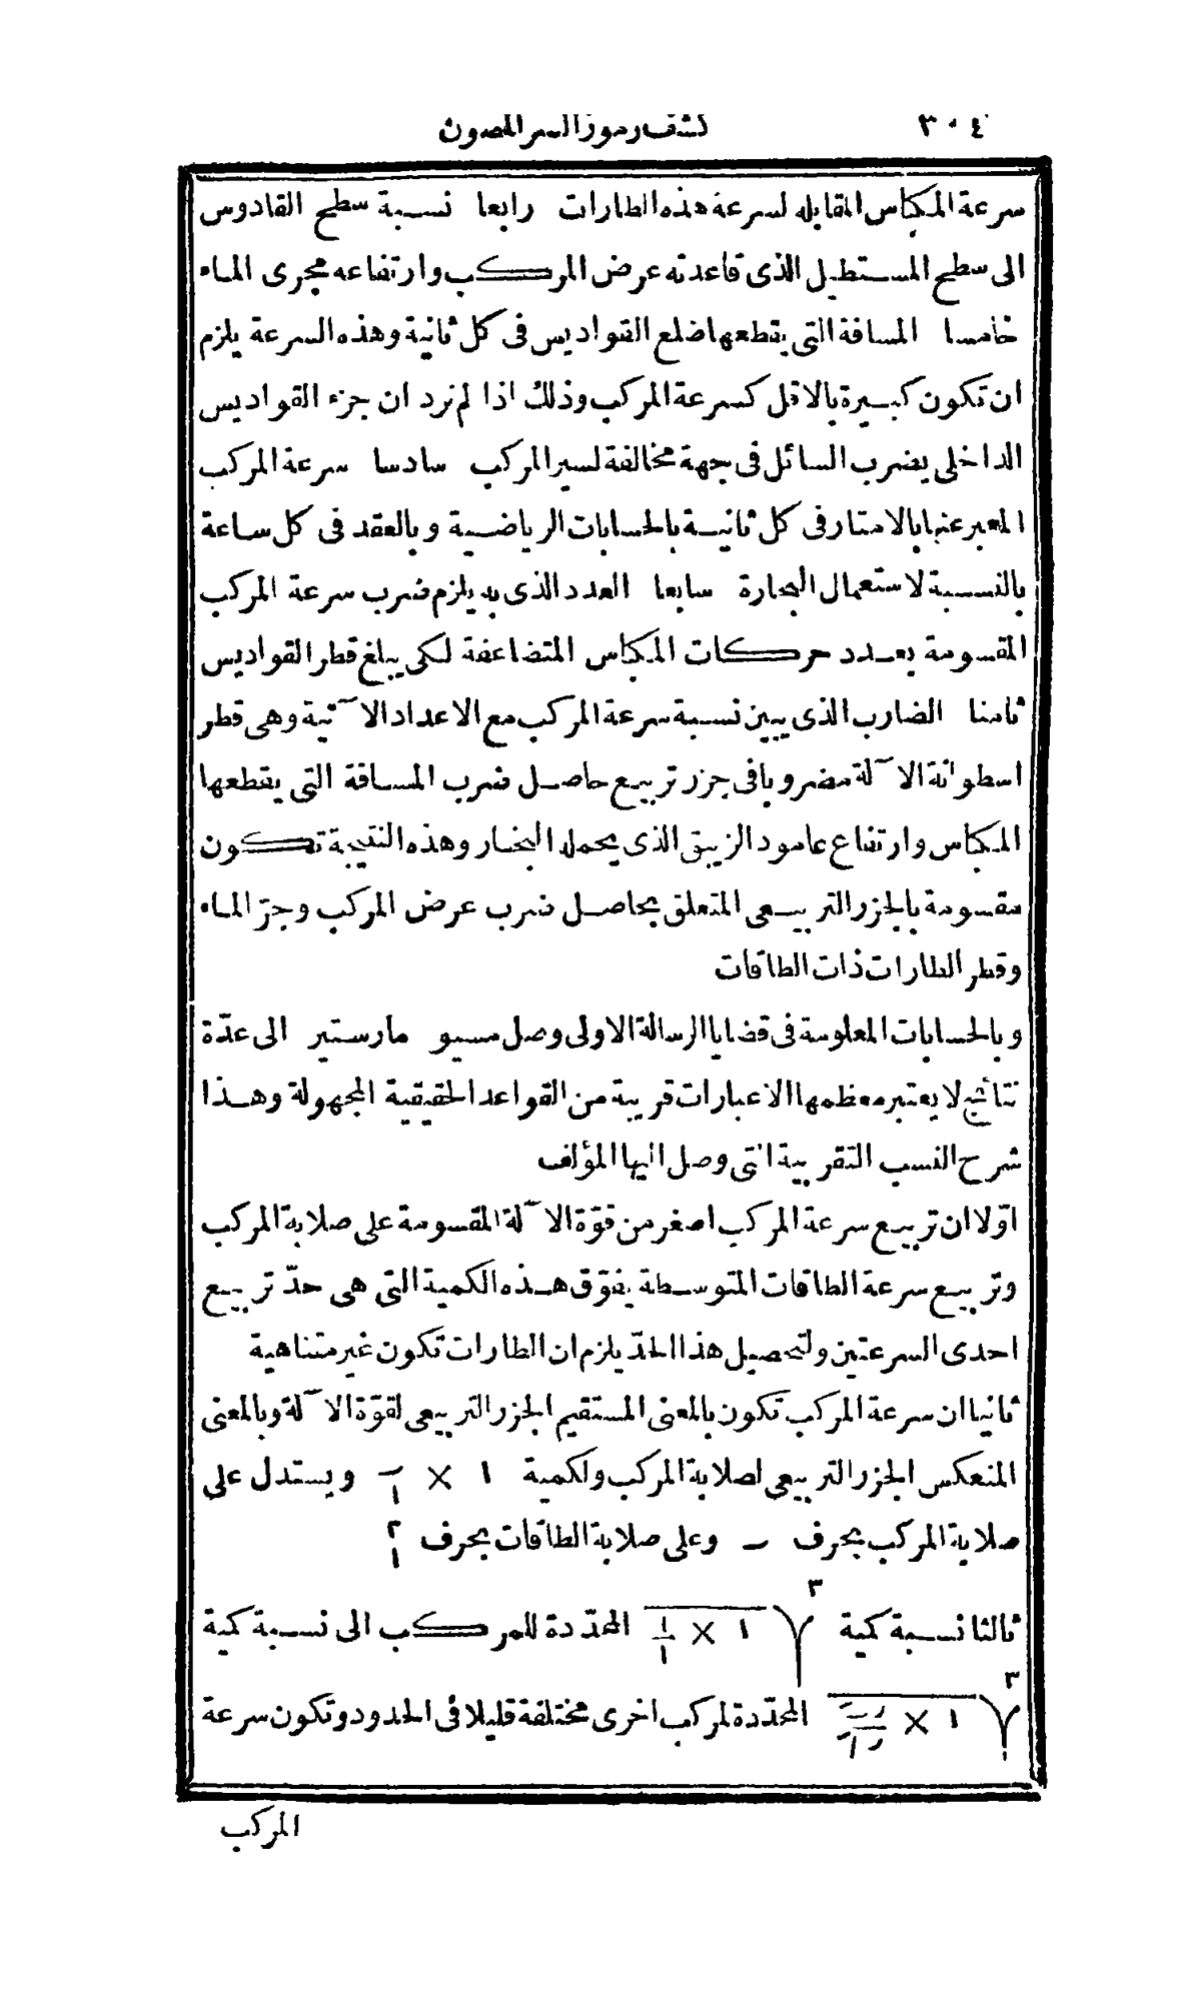 ٣٠٤ كشف رموز السر المصون
سرعة المكباس المقابله لسرعة هذه الطارات رابعا نسبة سطح القادوس
الى سطح المستطيل الذى قاعدته عرض المركب وارتفاعه مجرى الماء
خامسا المسافة التى يقطعها ضلع القواديس فى كل ثانية وهذه السرعة يلزم
ان تكون كبيرة بالاقل كسرعة المركب وذلك اذا لم نرد ان جزء القواديس
الداخلى يضرب السائل فى جهة مخالفة لسير المركب سادسا سرعة المركب
المعبر عنها بالامتار فى كل ثانية بالحسابات الرياضية وبالعقد فى كل ساعة
بالنسبة لاستعمال البحارة سابعا العدد الذى به يلزم ضرب سرعة المركب
المقسومة بعدد حركات المكباس المتضاعفة لكى يبلغ قطر القواديس
ثامنا الضارب الذى يبين نسبة سرعة المركب مع الاعداد الآتية وهى قطر
اسطوانة الآلة مضروبا فى جزر تربيع حاصل ضرب المسافة التى يقطعها
المكباس وارتفاع عامود الزيبق الذى يحمله البخار وهذه النتيجة تكون
مقسومة بالجزر التربيعى المتعلق بحاصل ضرب عرض المركب وجرّ الماء
وقطر الطارات ذات الطاقات
وبالحسابات المعلومة فى قضايا الرسالة الاولى وصل مسيو مارستير الى عدّة
نتائج لا يعتبر معظمها الا عبارات قريبة من القواعد الحقيقية المجهولة وهذا
شرح النسب التقريبية التى وصل اليها المؤلف
اوّلا ان تربيع سرعة المركب اصغر من قوّة الآلة المقسومة على صلابة المركب
وتربيع سرعة الطاقات المتوسطة يفوّق هذه الكمية التى هى حدّ تربيع
احدى السرعتين ولتحصيل هذا الحدّ يلزم ان الطارات تكون غير متناهية
ثانيا ان سرعة المركب تكون بالمعنى المستقيم الجزر التربيعى لقوّة الآلة وبالمعنى
المنعكس الجزر التربيعى لصلابة المركب ولكمية ١ × ويستدل على
صلابة المركب بحرف وعلى صلابة الطاقات بحرف
ثالثا نسبة كمية ٣ ١ × المحدّدة للمركب الى نسبة كمية
٣ ١ × المحدّدة لمركب اخرى مختلفة قليلا فى الحدود وتكون سرعة
المركب